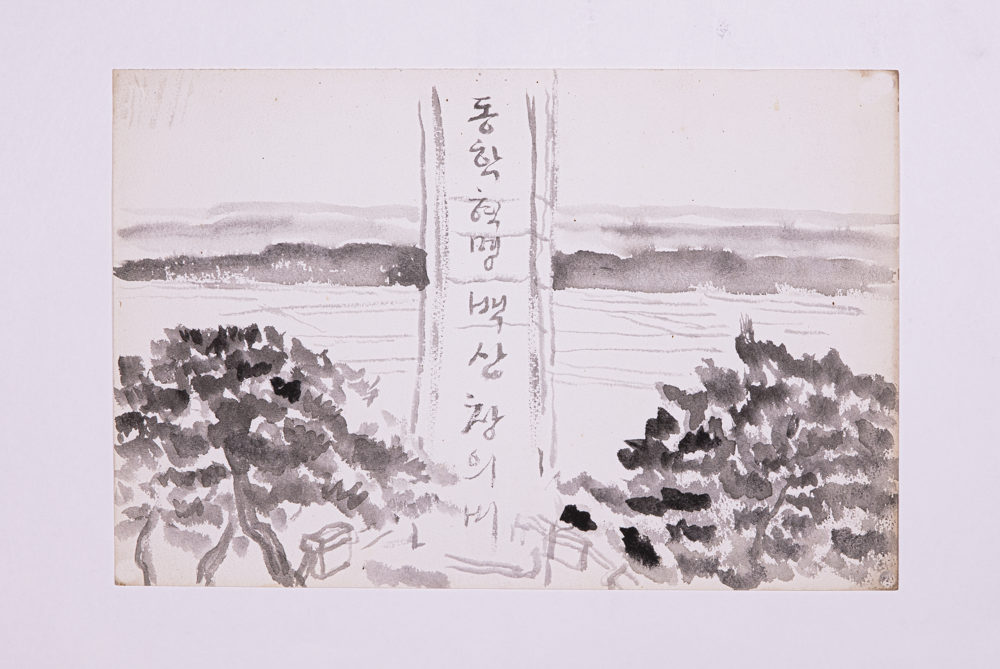 동학혁명백산창의비